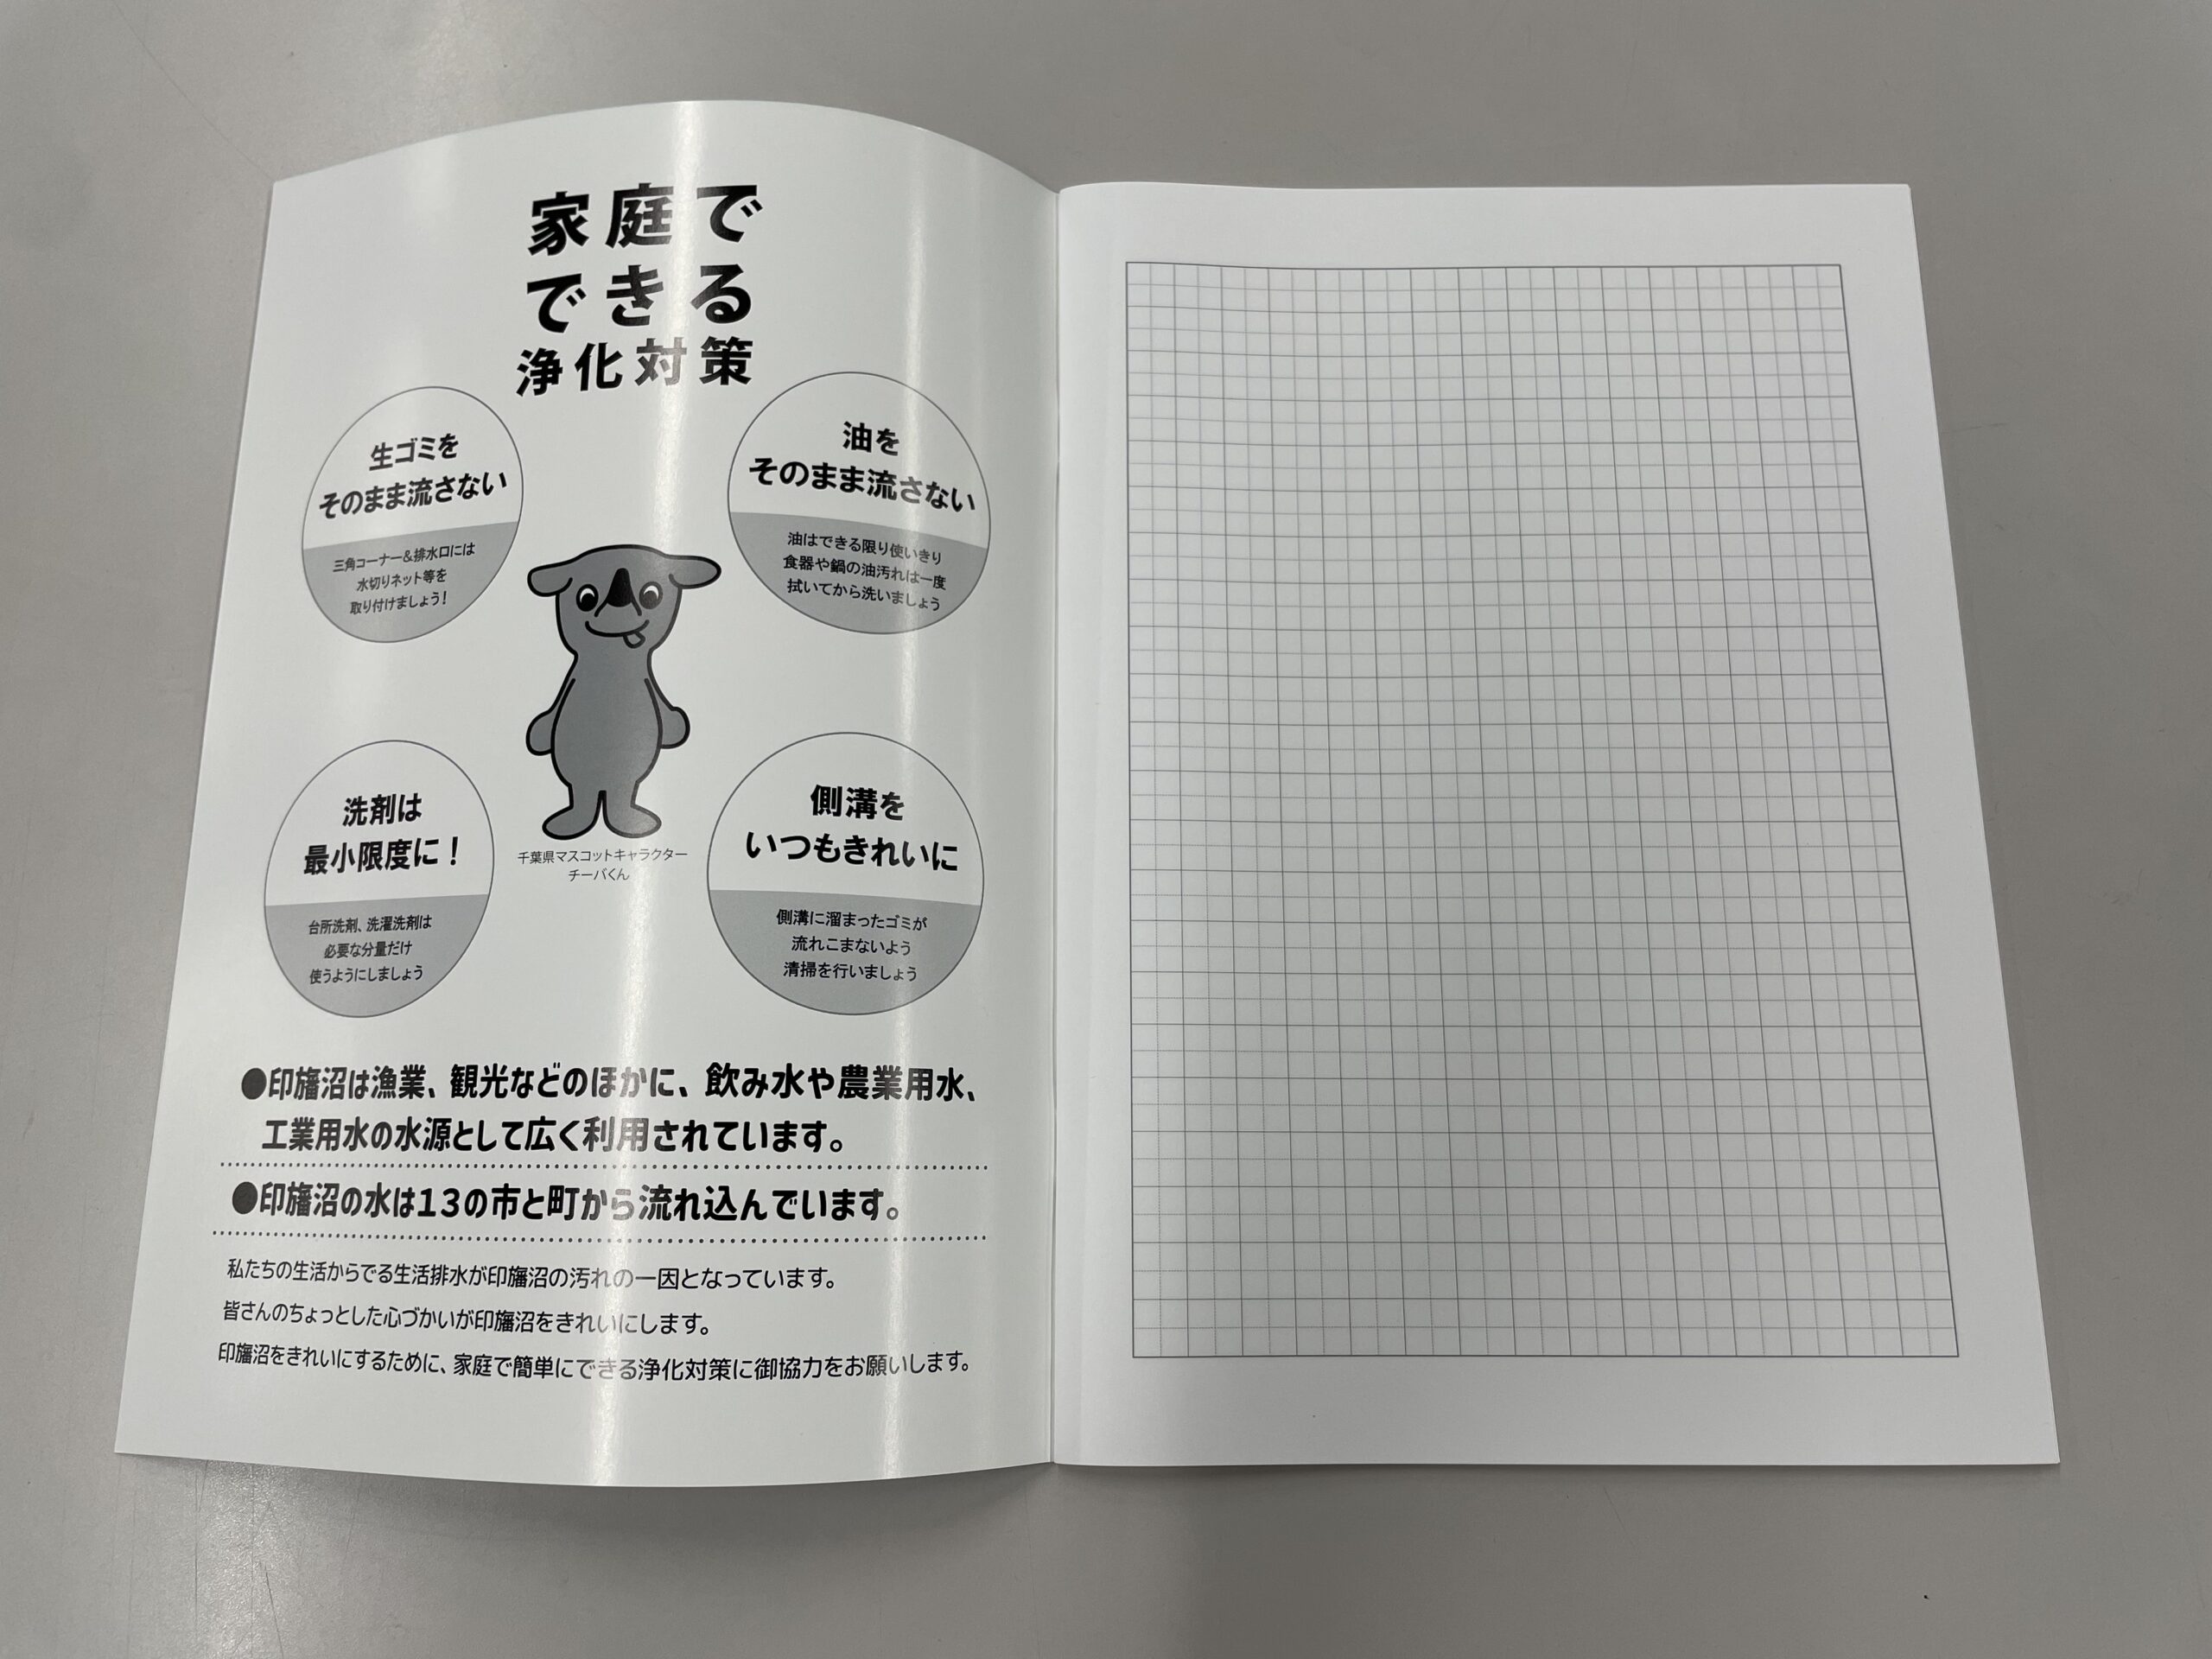 家庭で
できる
浄化対策
生ゴミを
そのまま流さない
三角コーナー&排水口には
水切りネット等を
取り付けましょう!
油を
そのまま流さない
油はできる限り使いきり
食器や鍋の油汚れは一度
拭いてから洗いましょう
洗剤は
最小限度に!
台所洗剤、洗濯洗剤は
必要な分量だけ
使うようにしましょう
千葉県マスコットキャラクター
チーバくん
側溝を
いつもきれいに
側溝に溜まったゴミが
流れこまないよう
清掃を行いましょう
●印旛沼は漁業、観光などのほかに、飲み水や農業用水、
工業用水の水源として広く利用されています。
●印旛沼の水は13の市と町から流れ込んでいます。
私たちの生活からでる生活排水が印旛沼の汚れの一因となっています。
皆さんのちょっとした心づかいが印旛沼をきれいにします。
印旛沼をきれいにするために、家庭で簡単にできる浄化対策に御協力をお願いします。